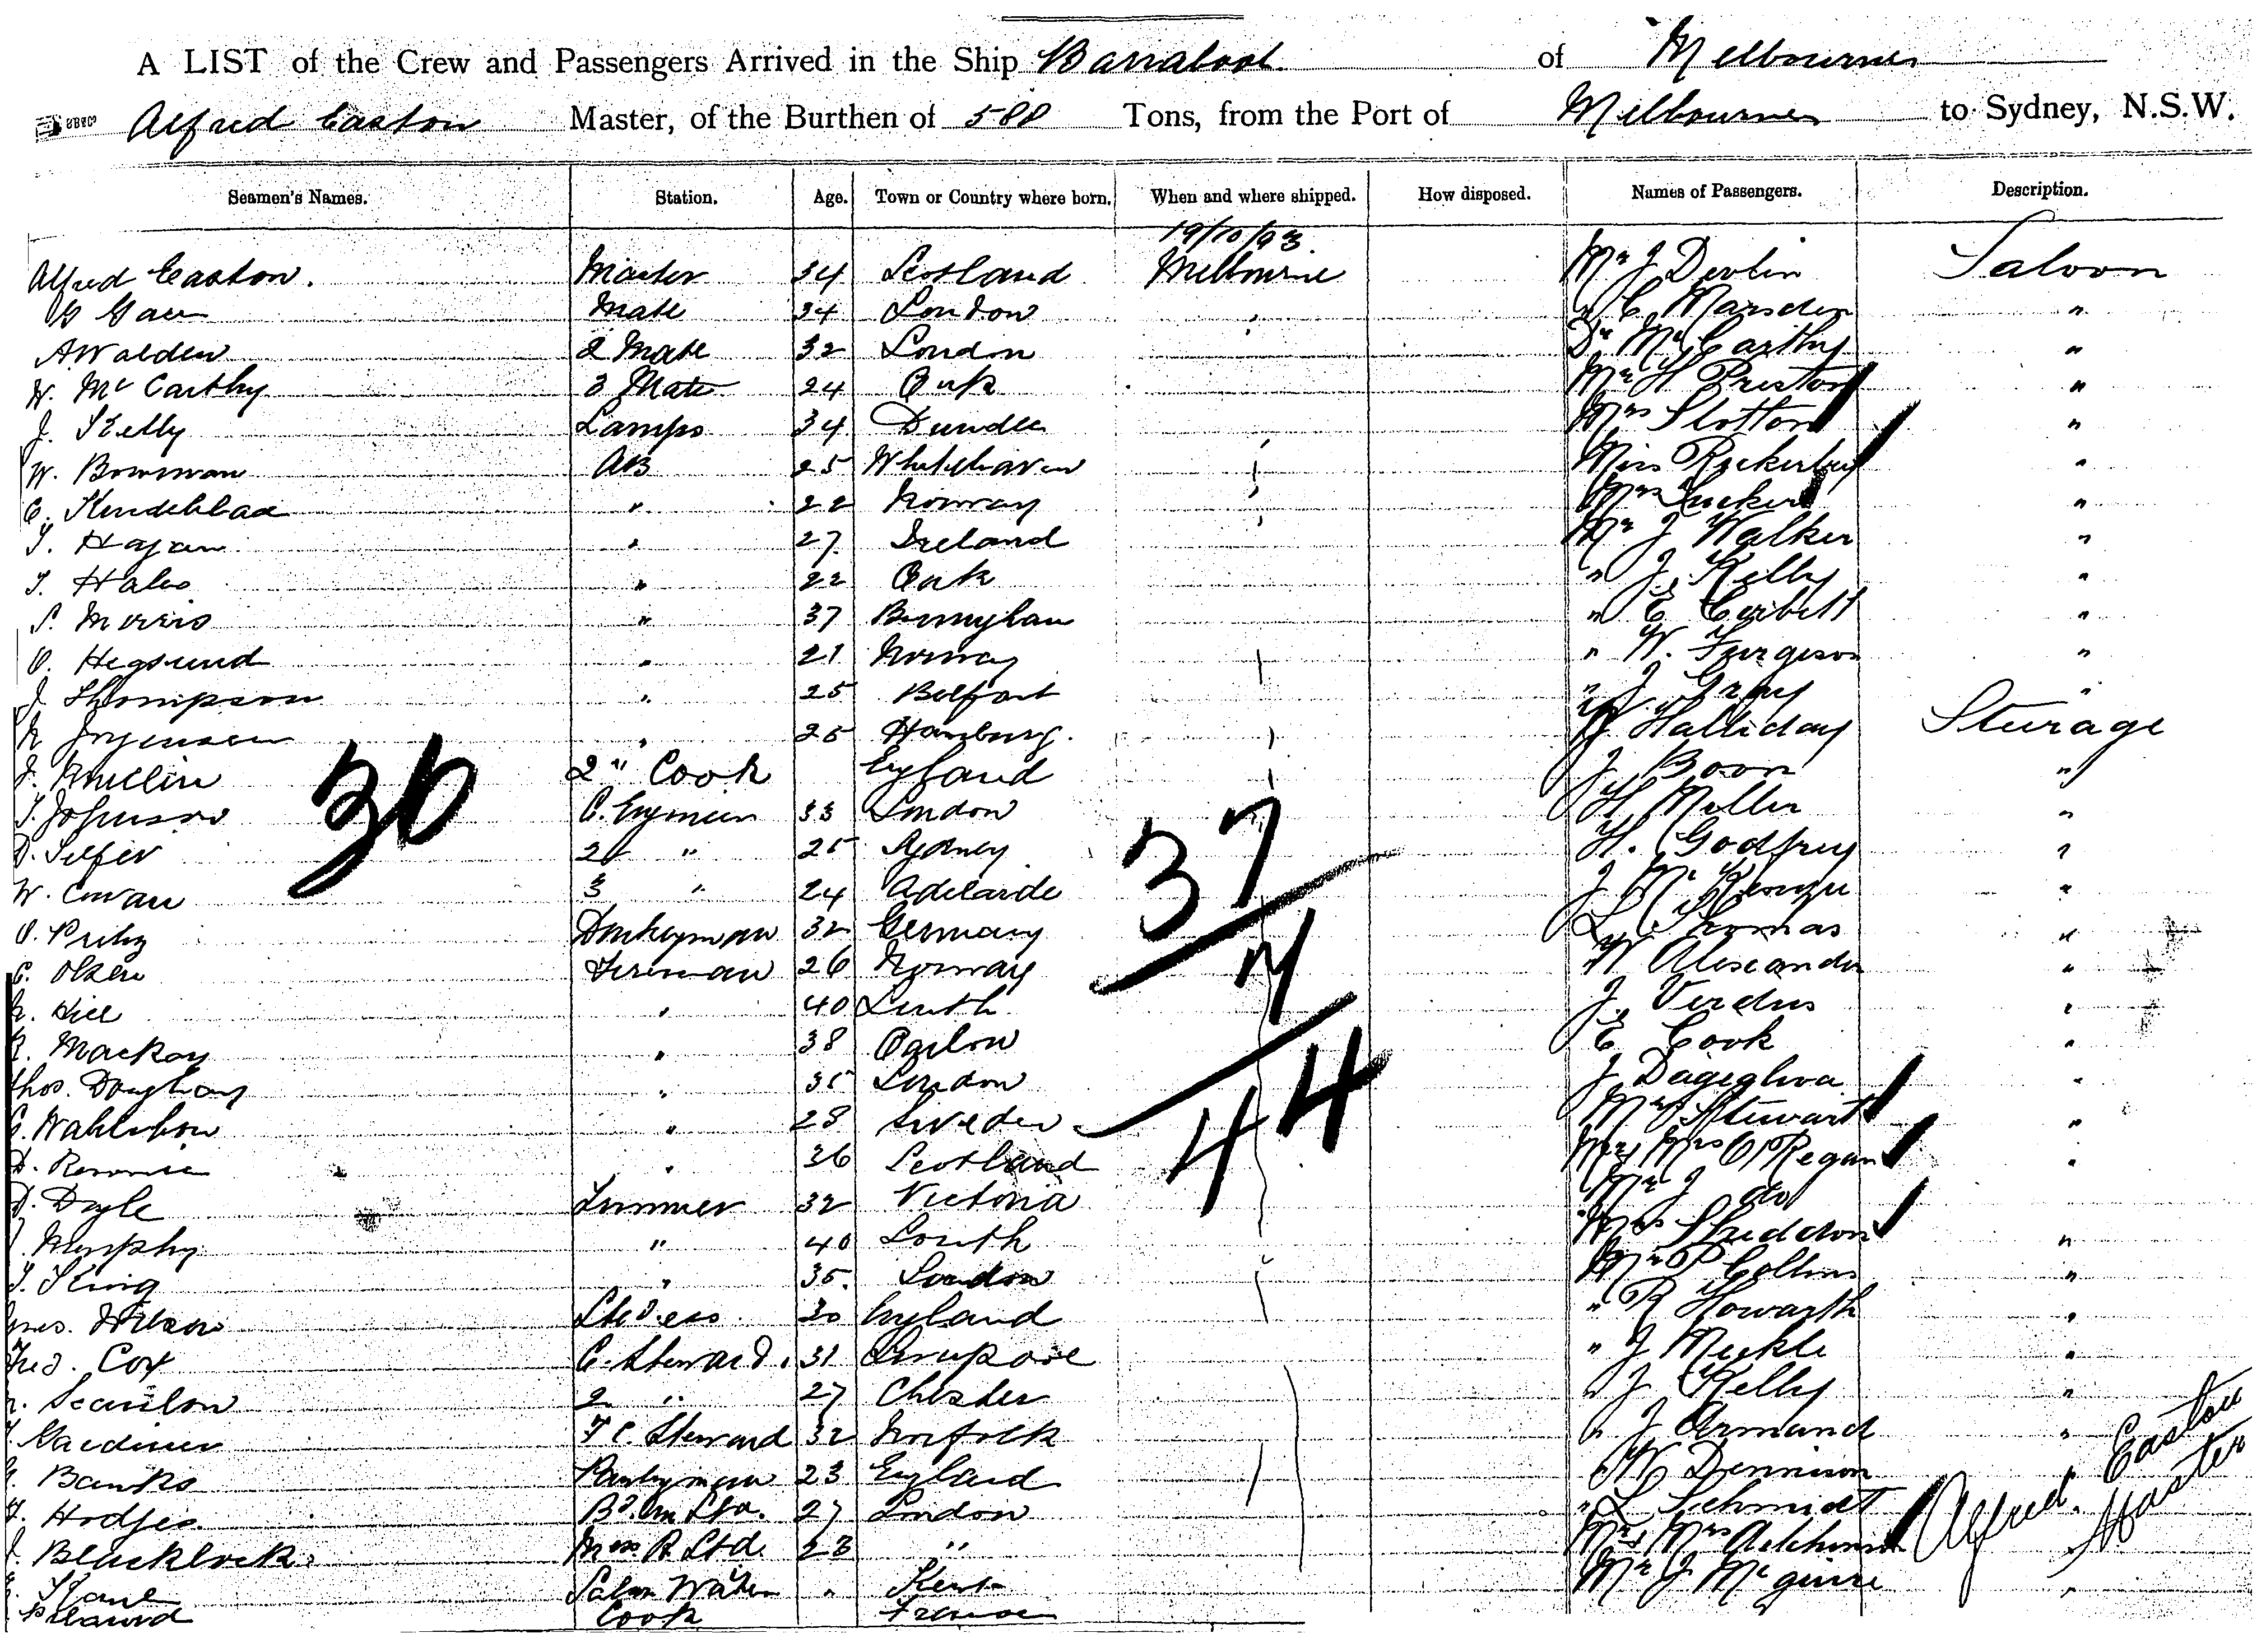 A LIST of the Crew and Passengers Arrived in the Ship Barrabool of Melbourne
Alfred Easton Master, of the Burthen of 588 Tons, from the Port of Melbourne to Sydney, N.S.W.
Seamen's Names. Station. Age. Town or Country where born. When and where shipped. How disposed. Names of Passengers. Description.
19/10/93
Alfred Easton. Master 34 Scotland Melbourne Mr J Devlin Saloon
G Gaw Mate 34 London " C Marsden "
A Walden 2 Mate 32 London Dr McCarthy "
W. McCarthy 3 Mate 24 Cork Mr H Preston "
J. Kelly Lamps 34 Dundee Mrs Slotton "
W. Bowman AB 25 Whitehaven Miss Rickerby "
C. " 22 Norway Mrs Tucker "
T. Hagan " 27 Ireland Mr J Walker "
T. Hales " 22 Cork " J. Kelly "
S. Morris " 37 Birmingham " E Corbett "
O. Hegsund " 21 Norway " W. Furgeson "
J Thompson " 25 Belfast " J Gray "
N Jorgensen " 25 Hamburg. W Halliday Sturage
J. 2" Cook England J Boon "
T. Johnson 30 C. Engineer 33 London H Miller "
D. Telfer 2 " 25 Sydney 37 H. Godfrey "
W. Cowan 3 " 24 Adelaide J McKenzie "
O. Donkeyman 32 Germany L Thomas "
C. Olsen Fireman 26 Norway 7 W Alexander "
Hill " 40 Louth J. Verdus "
Mackay " 38 Carlow E Cook "
Thos. " 35 London J "
C. " 28 Sweden 44 Mrs Stewart "
D. Rennie " 36 Scotland Mr & Mrs O'Regan "
D. Doyle Trimmer 32 Victoria Mr J do
Murphy " 40 Louth Mrs Sheddon "
T. King " 35. London Mr P Collins "
Mrs. Wilson Stwdess 30 England " R Howarth "
Fred. Cox C. Steward. 31 Liverpool " J Meikle "
Scanlon 2 " 27 Chester " J Kelly "
Gardiner F C. Steward 32 Norfolk " J Armand "
Banks Pantryman 23 England " W Dennison "
Hodges Bd. Rm Std. 27 London " L Schmidt Alfred. Easton
Blacklock Mess R Std. 23 " Mr & Mrs Master
Kane Saloon Waiter " Kent Mr J McGuire "
Cook France